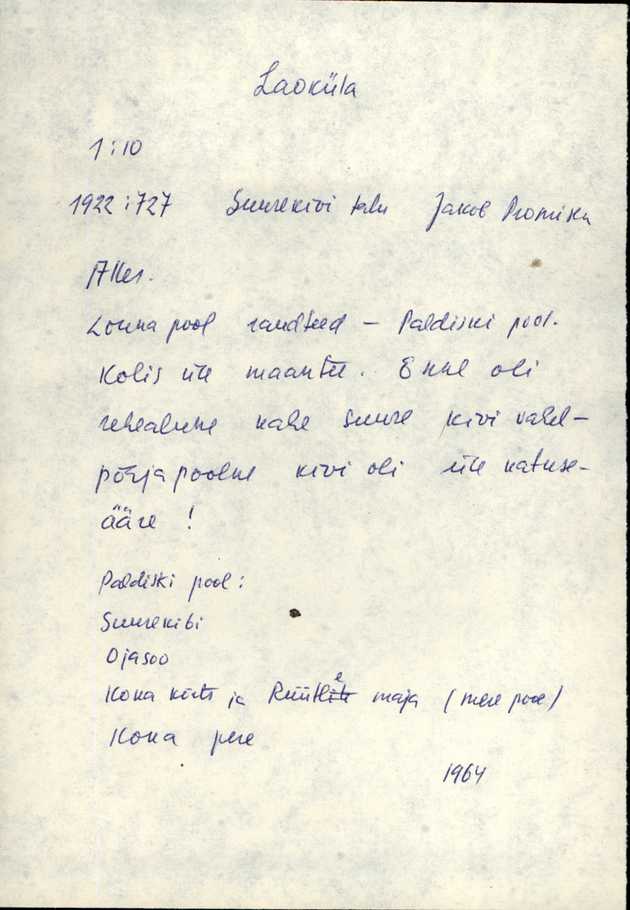 Laoküla
1:10
1922:727 Suurekivi talu Jakob Promiku
Aller.
Lõuna pool raudteed – Paldiski pool.
Kolis üle maantee. Enne oli
rehealune kahe suure kivi vahel–
põhjapoolne kivi oli üle katuse-
ääre !
Paldiski pool :
Suurekibi
Ojasoo
Kona kõrts ja Rüütle maja (mere pool)
Kona pere
1964